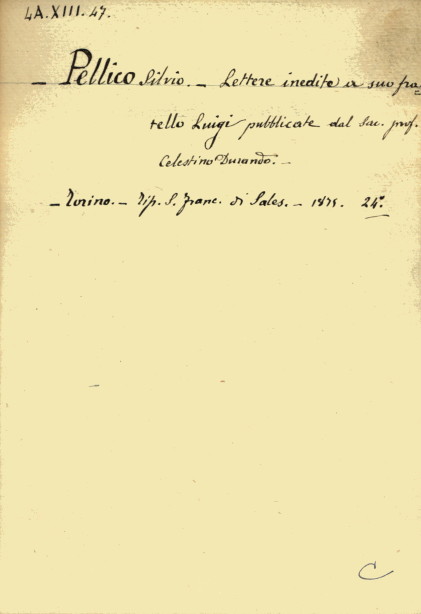 4A.XIII.47.
— Pellico Silvio. — Lettere inedite a suo fra=
tello Luigi pubblicate dal Sac. prof.
Celestino Durando. —
— Torino. — Tip. S. Franc. di Sales. — 1875. 24.°
C